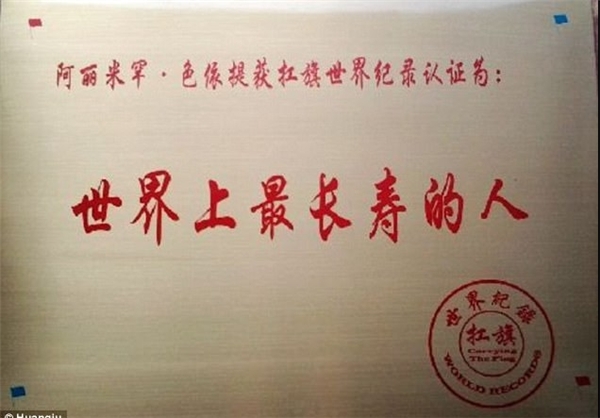 阿丽米罕·色依提获扛旗世界纪录认证为:
世界上最长寿的人
世界纪录
扛旗
Carrying
The Flag
WORLD RECORDS
© Huanqiu